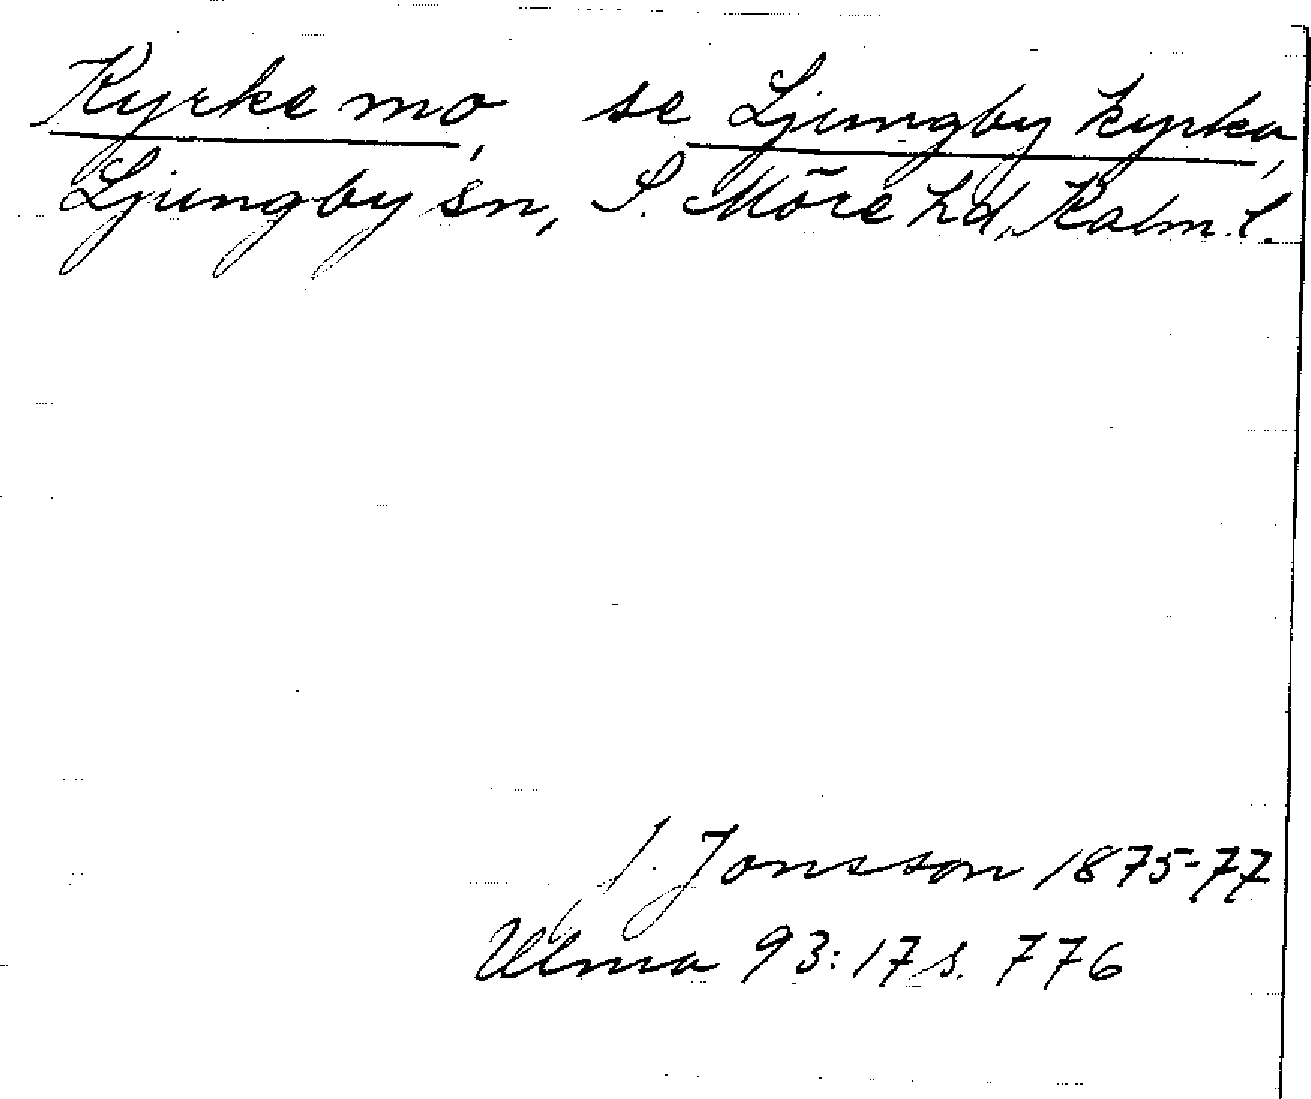 Kyrke mo, se Ljungby kyrka,
Ljungby sn, S. Möre hd, Kalm. l.
J. Jonsson 1875-77
Ulma 93:17 s. 776